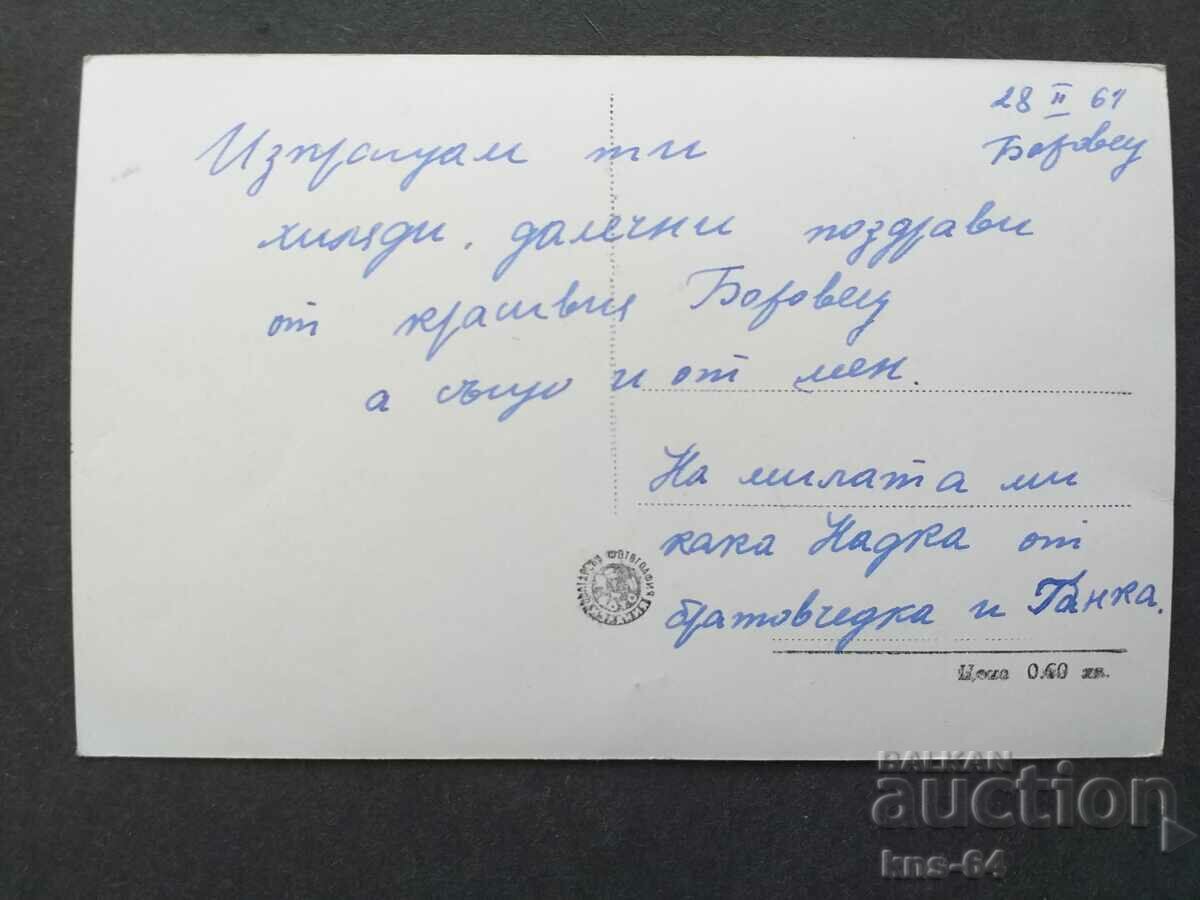 28 II 61
Боровец
Изпращам ти
хиляди, далечни поздрави
от красивия Боровец
а също и от мен.
На милата ми
кака Надка от
братовчедка и Ганка.
БЪЛГАРСКА ФОТОГРАФИЯ
Цена 0.60 лв.
BALKAN
auction
kns-64